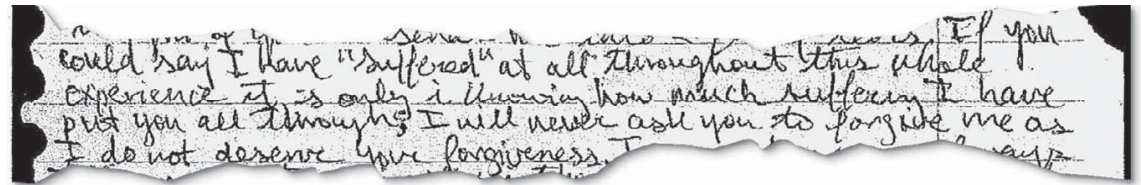 If you
could say I have "suffered" at all throughout this whole
experience it is only i knowing how much suffering I have
put you all through, I will never ask you to forgive me as
I do not deserve your forgiveness. I